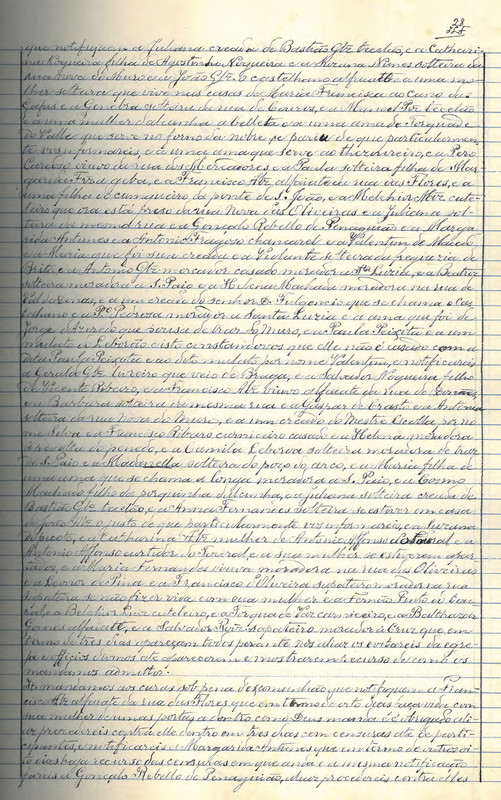 que notifiquem a Juliana creada de Bastião Glz tecelão, e a Catheri-
na Nogueira filha de Agostinho Nogueira e a Nunes solteira da
rua nova do muro e a João Glz o castelhano alfaiate e a uma mo-
lher solteira que vive nas casas de Maria Francisca ao cano da
e a Genebra solteira da rua de e a Manoel tecelão
e a uma mulher d'alcunha a belleta e a uma ama de
do Valle que serve no forno da nobre, se pariu de que particularmen-
te vos informareis, e a uma ama que serve ao e a Pero
Cardoso viuvo da rua dos Mercadores e a Paula solteira filha de Mar-
garida e a Francisco Alz alfaiate da rua das Flores, e a
uma filha do da ponte de S. João, e a Melchior cute-
leiro que ora está preso da rua Nova e as Oliveiras e a Juliana sol-
teira da mesma rua e a Gonçalo Rebello de Penaguião e a Marga-
rida Antunes e a Antonio Fragoso e a Valentim de Macedo
e a Maria que foi sua creada e a Violante solteira da freguezia de
Brito e a Antonio Glz mercador casado morador a Sta Luzia, e a Beatriz
solteira moradora a S. Paio e a Helena Machada moradora na rua de
Val de Donas, e a um creado do senhor Dr. Fulgencio que se chama o Cas-
telhano e a Pedrosa morador a Santa Luzia e a ama que foi de
Jorge d'Azeredo que pousa de traz do Muro, e a Paula Peixota e a um
mulato de Leborão e isto constando-vos que elle não é casado com a
dita Paula Peixota e ao dito mulato por nome Valentim, e notificareis
a Geraldo Glz que veio de Braga, e a Salvador Nogueira filho
de Vicente Ribeiro, e a Francisco Alz viuvo alfaiate da rua de
e a Barbara solteira da mesma rua e a Gaspar de Crasto e a Antonia
solteira da rua nova do Muro, e a um creado do Mestre Escolla por no-
me Silva e a Francisco Ribeiro carniceiro casado e a Helena, moradora
e a Camilla solteira moradora de traz
de S. Paio e a Madanella solteira do poço do arco, e a Maria filha de
uma ama que se chama a longa moradora a S. Paio, e a Cosmo
Machado filho da porquinha d'alcunha, e a Juliana solteira creada de
Bastião Glz tecelão, e a Anna Fernandes solteira se estiver em casa
de João Alz o justo de que particularmente vos informareis, e a Suzana
do e a Catharina Alz mulher de Antonio Affonso do Toural e a
Antonio Affonso curtidor do Toural, e a sua mulher se estiverem apar-
tados, e a Maria Fernandes viuva moradora na rua das Oliveiras
e a Leonor de Pina e a Francisco d'Oliveira sapateiro morador na rua
Sapateira se não fizer vida com sua mulher e a Fernão Pinto
e a Belchior cuteleiro, e a Vaz carniceiro, e a Balthazar
Gomes alfaiate, e a Salvador sapateiro morador á Cruz que em
termo de tres dias apareçam todos perante nós aliaz os evitareis da egre-
ja e officios divinos até aparecerem e mostrarem recurso de como os
mandamos admittir.
Se mandamos aos curas sob pena d'excommunhão que notifiquem a Fran-
cisco Alz alfaiate da rua das Flores que em termo de oito dias faça vida com
sua mulher de uma porta a dentro como Deus manda e é obrigado ali-
az procedereis contra elle dentro em tres dias com censuras até de parti-
cipantes, e notificareis a Margarida Antunes que em termo de vinte e oi-
to dias haja recurso das censuras em que anda e a mesma notificação
fareis a Gonçalo Rebello de Penaguião, aliaz procedereis contra elles